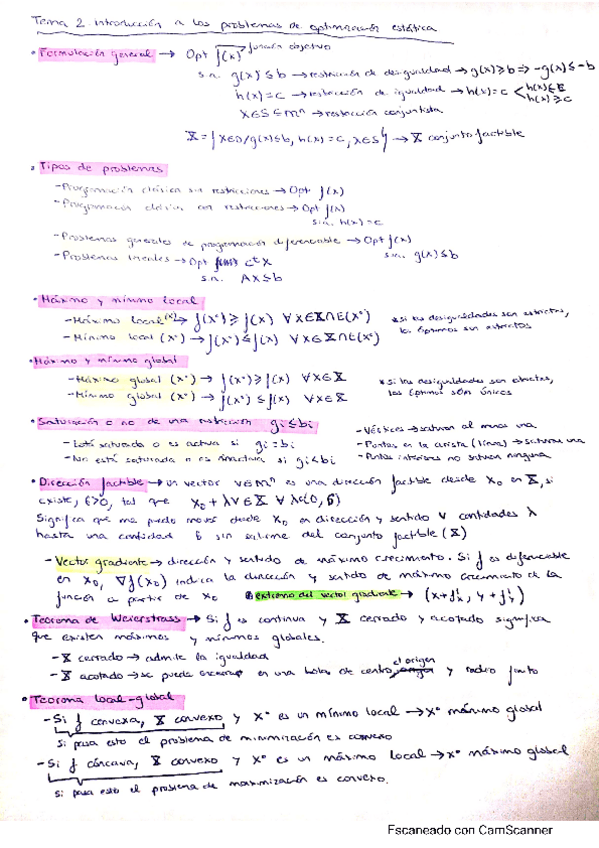 Tema 2. Introducción a los problemas de optimización estática
• Formulación general → Opt f(x) → función objetivo
s.a. g(x) ≤ b → restricción de desigualdad → g(x) ≥ b => -g(x) ≤ -b
h(x) = c → restricción de igualdad → h(x) = c < h(x) ≤ c
h(x) ≥ c
x ∈ S ⊆ ℝⁿ → restricción conjuntista
X = {x ∈ D / g(x) ≤ b, h(x) = c, x ∈ S} → X conjunto factible
• Tipos de problemas
- Programación clásica sin restricciones → Opt f(x)
- Programación clásica con restricciones → Opt f(x)
s.a. h(x) = c
- Problemas generales de programación diferenciable → Opt f(x)
s.a. g(x) ≤ b
- Problemas lineales → Opt cᵗx
s.a. Ax ≤ b
• Máximo y mínimo local
- Máximo local (x*) → f(x*) ≥ f(x) ∀x ∈ X ∩ E(x*)
- Mínimo local (x*) → f(x*) ≤ f(x) ∀x ∈ X ∩ E(x*)
* si las desigualdades son estrictas,
los óptimos son estrictos
• Máximo y mínimo global
- Máximo global (x*) → f(x*) ≥ f(x) ∀x ∈ X
- Mínimo global (x*) → f(x*) ≤ f(x) ∀x ∈ X
* si las desigualdades son estrictas,
los óptimos son únicos
• Saturación o no de una restricción gi ≤ bi
- Está saturada o es activa si gi = bi
- No está saturada o es inactiva si gi < bi
- Vértices → saturan al menos una
- Puntos en la arista (línea) → saturan una
- Puntos interiores no saturan ninguna
• Dirección factible → un vector v ∈ ℝⁿ es una dirección factible desde x₀ en X, si
existe, δ > 0, tal que x₀ + λv ∈ X ∀ λ ∈ (0, δ)
Significa que me puedo mover desde x₀ en dirección y sentido v cantidades λ
hasta una cantidad δ sin salirme del conjunto factible (X)
- Vector gradiente → dirección y sentido de máximo crecimiento. Si f es diferenciable
en x₀, ∇f(x₀) indica la dirección y sentido de máximo crecimiento de la
función a partir de x₀ extremo del vector gradiente → (x + f'x, y + f'y)
• Teorema de Weierstrass → Si f es continua y X cerrado y acotado significa
que existen máximos y mínimos globales.
- X cerrado → admite la igualdad
- X acotado → se puede encerrar en una bola de centro el origen y radio finito
• Teorema local-global
- Si f convexa, X convexo y x* es un mínimo local → x* mínimo global
si pasa esto el problema de minimización es convexo
- Si f cóncava, X convexo y x* es un máximo local → x* máximo global
si pasa esto el problema de maximización es convexo.
Escaneado con CamScanner